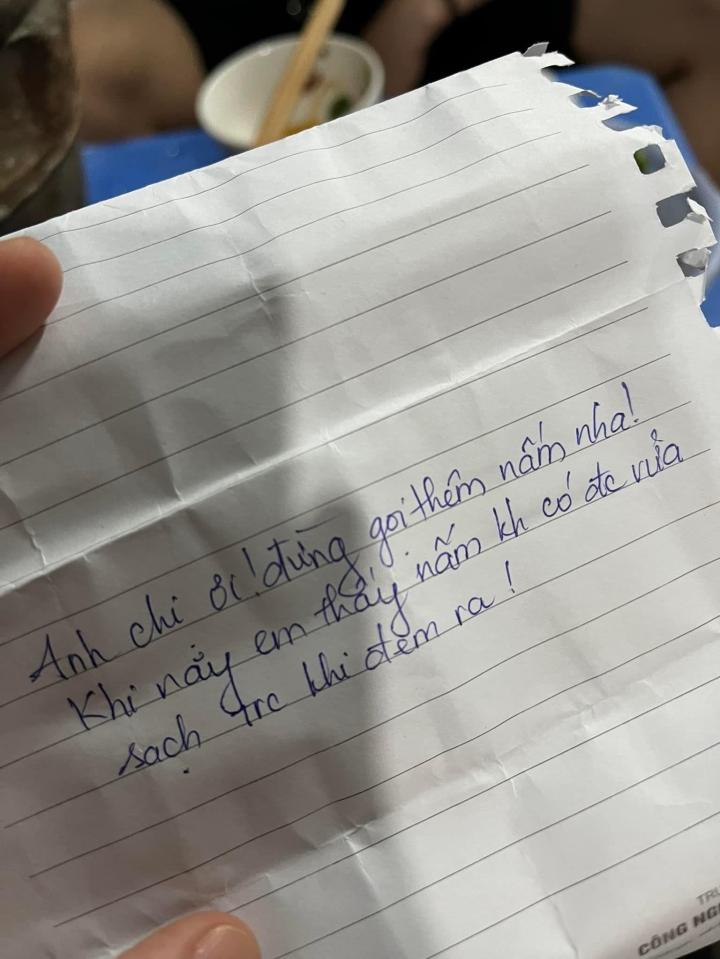 Anh chị ơi! đừng gọi thêm nấm nha!
Khi nảy em thấy nấm kh có đc rửa
sạch trc khi đem ra!
CÔNG